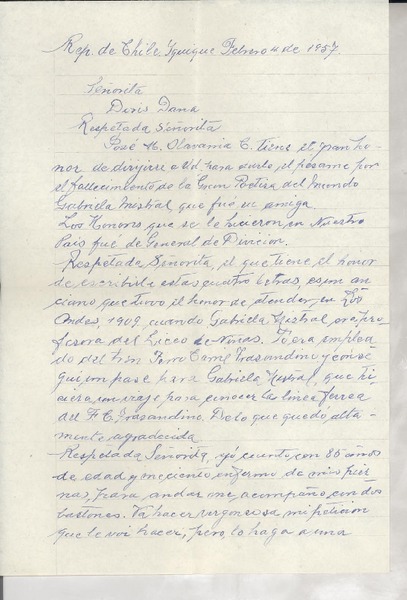 Rep. de Chile. Iquique Febrero 4 de 1957
Señorita
Doris Dana
Respetada Señorita
José M. Olavarria C. tiene el gran ho-
nor de dirijirse a Ud. para darle, el pesame por
el fallecimiento de la Gran Poetisa del Mundo
Gabriela Mistral que fué su amiga.
Los Honores que se le hicieron en Nuestro
País fué de General de Division.
Respetada Señorita, el que tiene el honor
de escribirle estas cuatro letras, es un an-
ciano que tuvo el honor de atender, en Los
Andes, 1909, cuando Gabriela Mistral era Pro-
fesora del Liceo de Niñas. Yo era emplea-
do del Ferro Carril Trasandino y conse-
quí un pase para Gabriela Mistral, que hi-
siera un viaje para conocer las linea ferrea
del F.C. Trasandino. De lo que quedó alta-
mente agradecida.
Respetada Señorita, yó cuento con 86 años
de edad y me ciento enfermo de mis pier-
nas, para andar me acompaño con dos
bastones. Va hacer vergonzosa mi peticion
que le voi hacer, pero lo haga a una